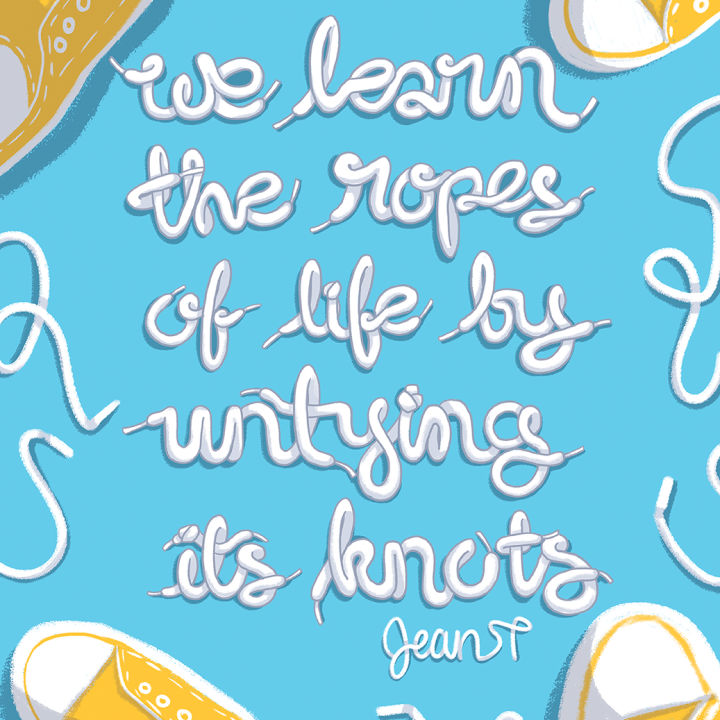 we learn
the ropes
of life by
untying
its knots
Jean T